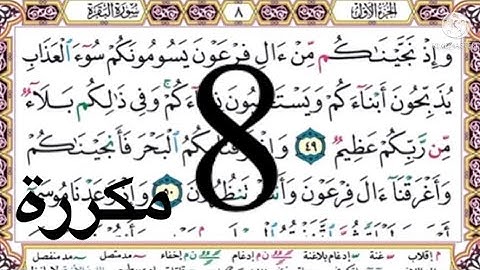 الجزء الأول ٨ سورة البقرة
وَإِذْ نَجَّيْنَٰكُم مِّنْ ءَالِ فِرْعَوْنَ يَسُومُونَكُمْ سُوٓءَ الْعَذَابِ
يُذَبِّحُونَ أَبْنَآءَكُمْ وَيَسْتَحْيُونَ نِسَآءَكُمْ وَفِى ذَٰلِكُم بَلَآءٌ
مِّن رَّبِّكُمْ عَظِيمٌ ٤٩ وَإِذْ فَرَقْنَا بِكُمُ الْبَحْرَ فَأَنجَيْنَٰكُمْ
وَأَغْرَقْنَآ ءَالَ فِرْعَوْنَ وَأَنتُمْ تَنظُرُونَ ٥٠ وَإِذْ وَٰعَدْنَا مُوسَىٰٓ
8
مكررة
م إقلاب غنة إدغام بلاغنة إدغام إخفاء مد متصل مد منفصل